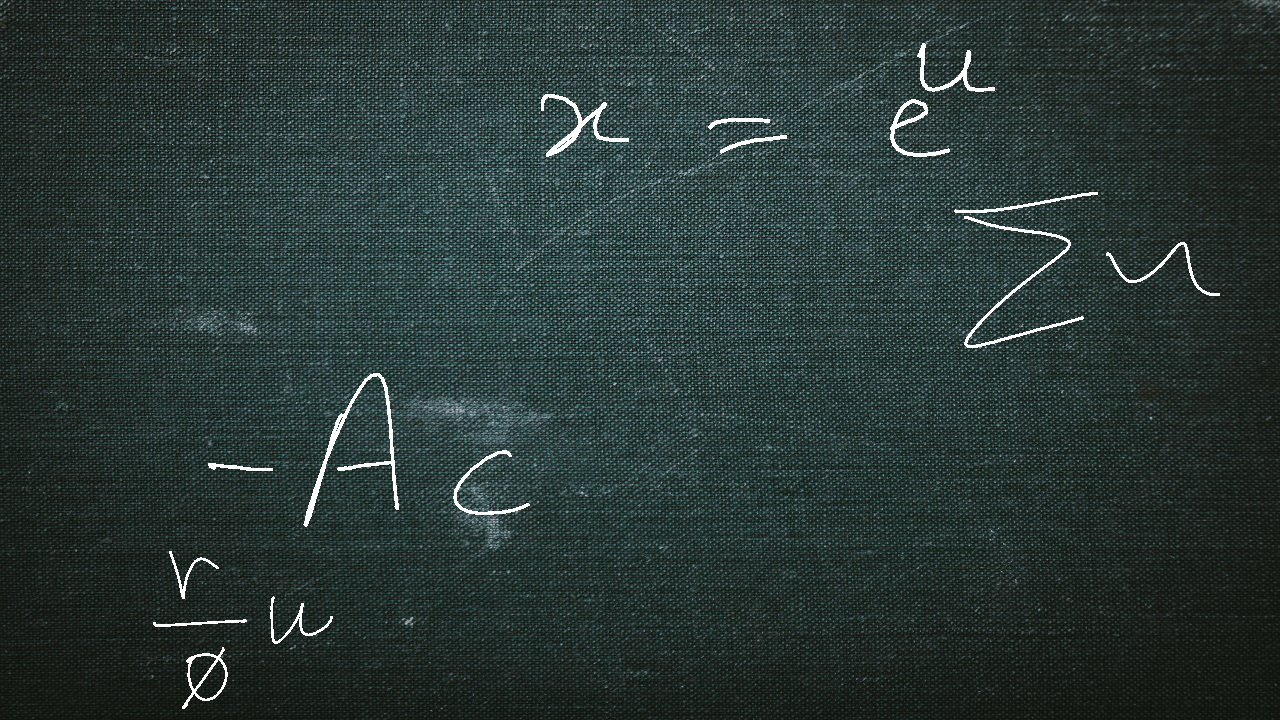 x = e^u
∑u
-Ac
r/∅ u